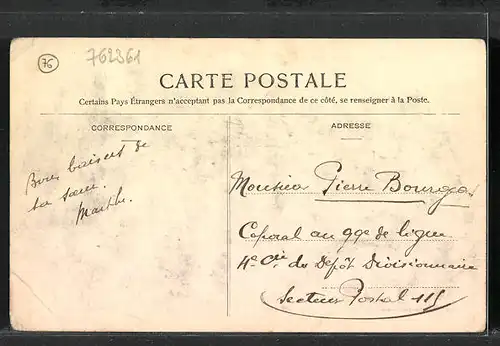 76
762361
CARTE POSTALE
Certains Pays Étrangers n'acceptant pas la Correspondance de ce côté, se renseigner à la Poste.
CORRESPONDANCE
Bons baisers de
ta sœur.
Marthe.
ADRESSE
Monsieur Pierre Bourgeo
Caporal au 99e de ligne
4e Cie du Dépôt Divisionnaire
Secteur Postal 115